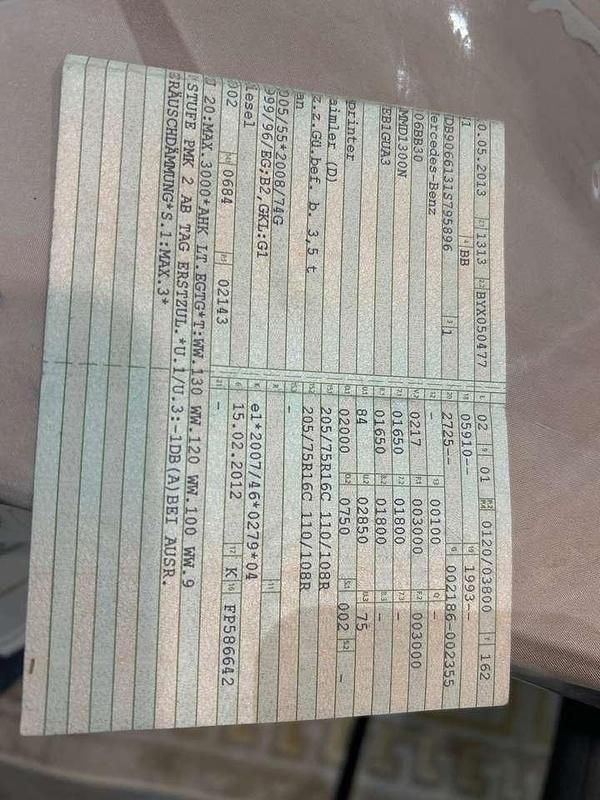 0.05.2013 1313 BYX050477
BB
DB9066131S795896 1
ercedes-Benz
06BB30
MMD1300N
EB1GUA3
printer
aimler (D)
z.z.Gü.bef. b. 3,5 t
an
005/55*2008/74G
999/96/EG:B2,GKL:G1
iesel
002 0684 02143
02 01 0120/03800 162
05910-- 1993--
2725-- 002186-002355
- 00100 -
0217 003000 003000
01650 01800 -
01650 01800 -
84 02850 75
02000 0750 002 -
205/75R16C 110/108R
205/75R16C 110/108R
-
e1*2007/46*0279*04
15.02.2012 K FP586642
-
20:MAX.3000*AHK LT.EGTG*T:WW.130 WW.120 WW.100 WW.9
STUFE PMK 2 AB TAG ERSTZUL.*U.1/U.3:-1DB(A)BEI AUSR.
RÄUSCHDÄMMUNG*S.1:MAX.3*